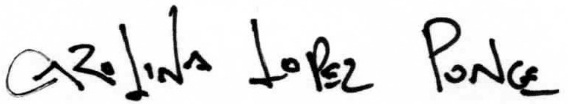 CAROLINA LOPEZ PONCE